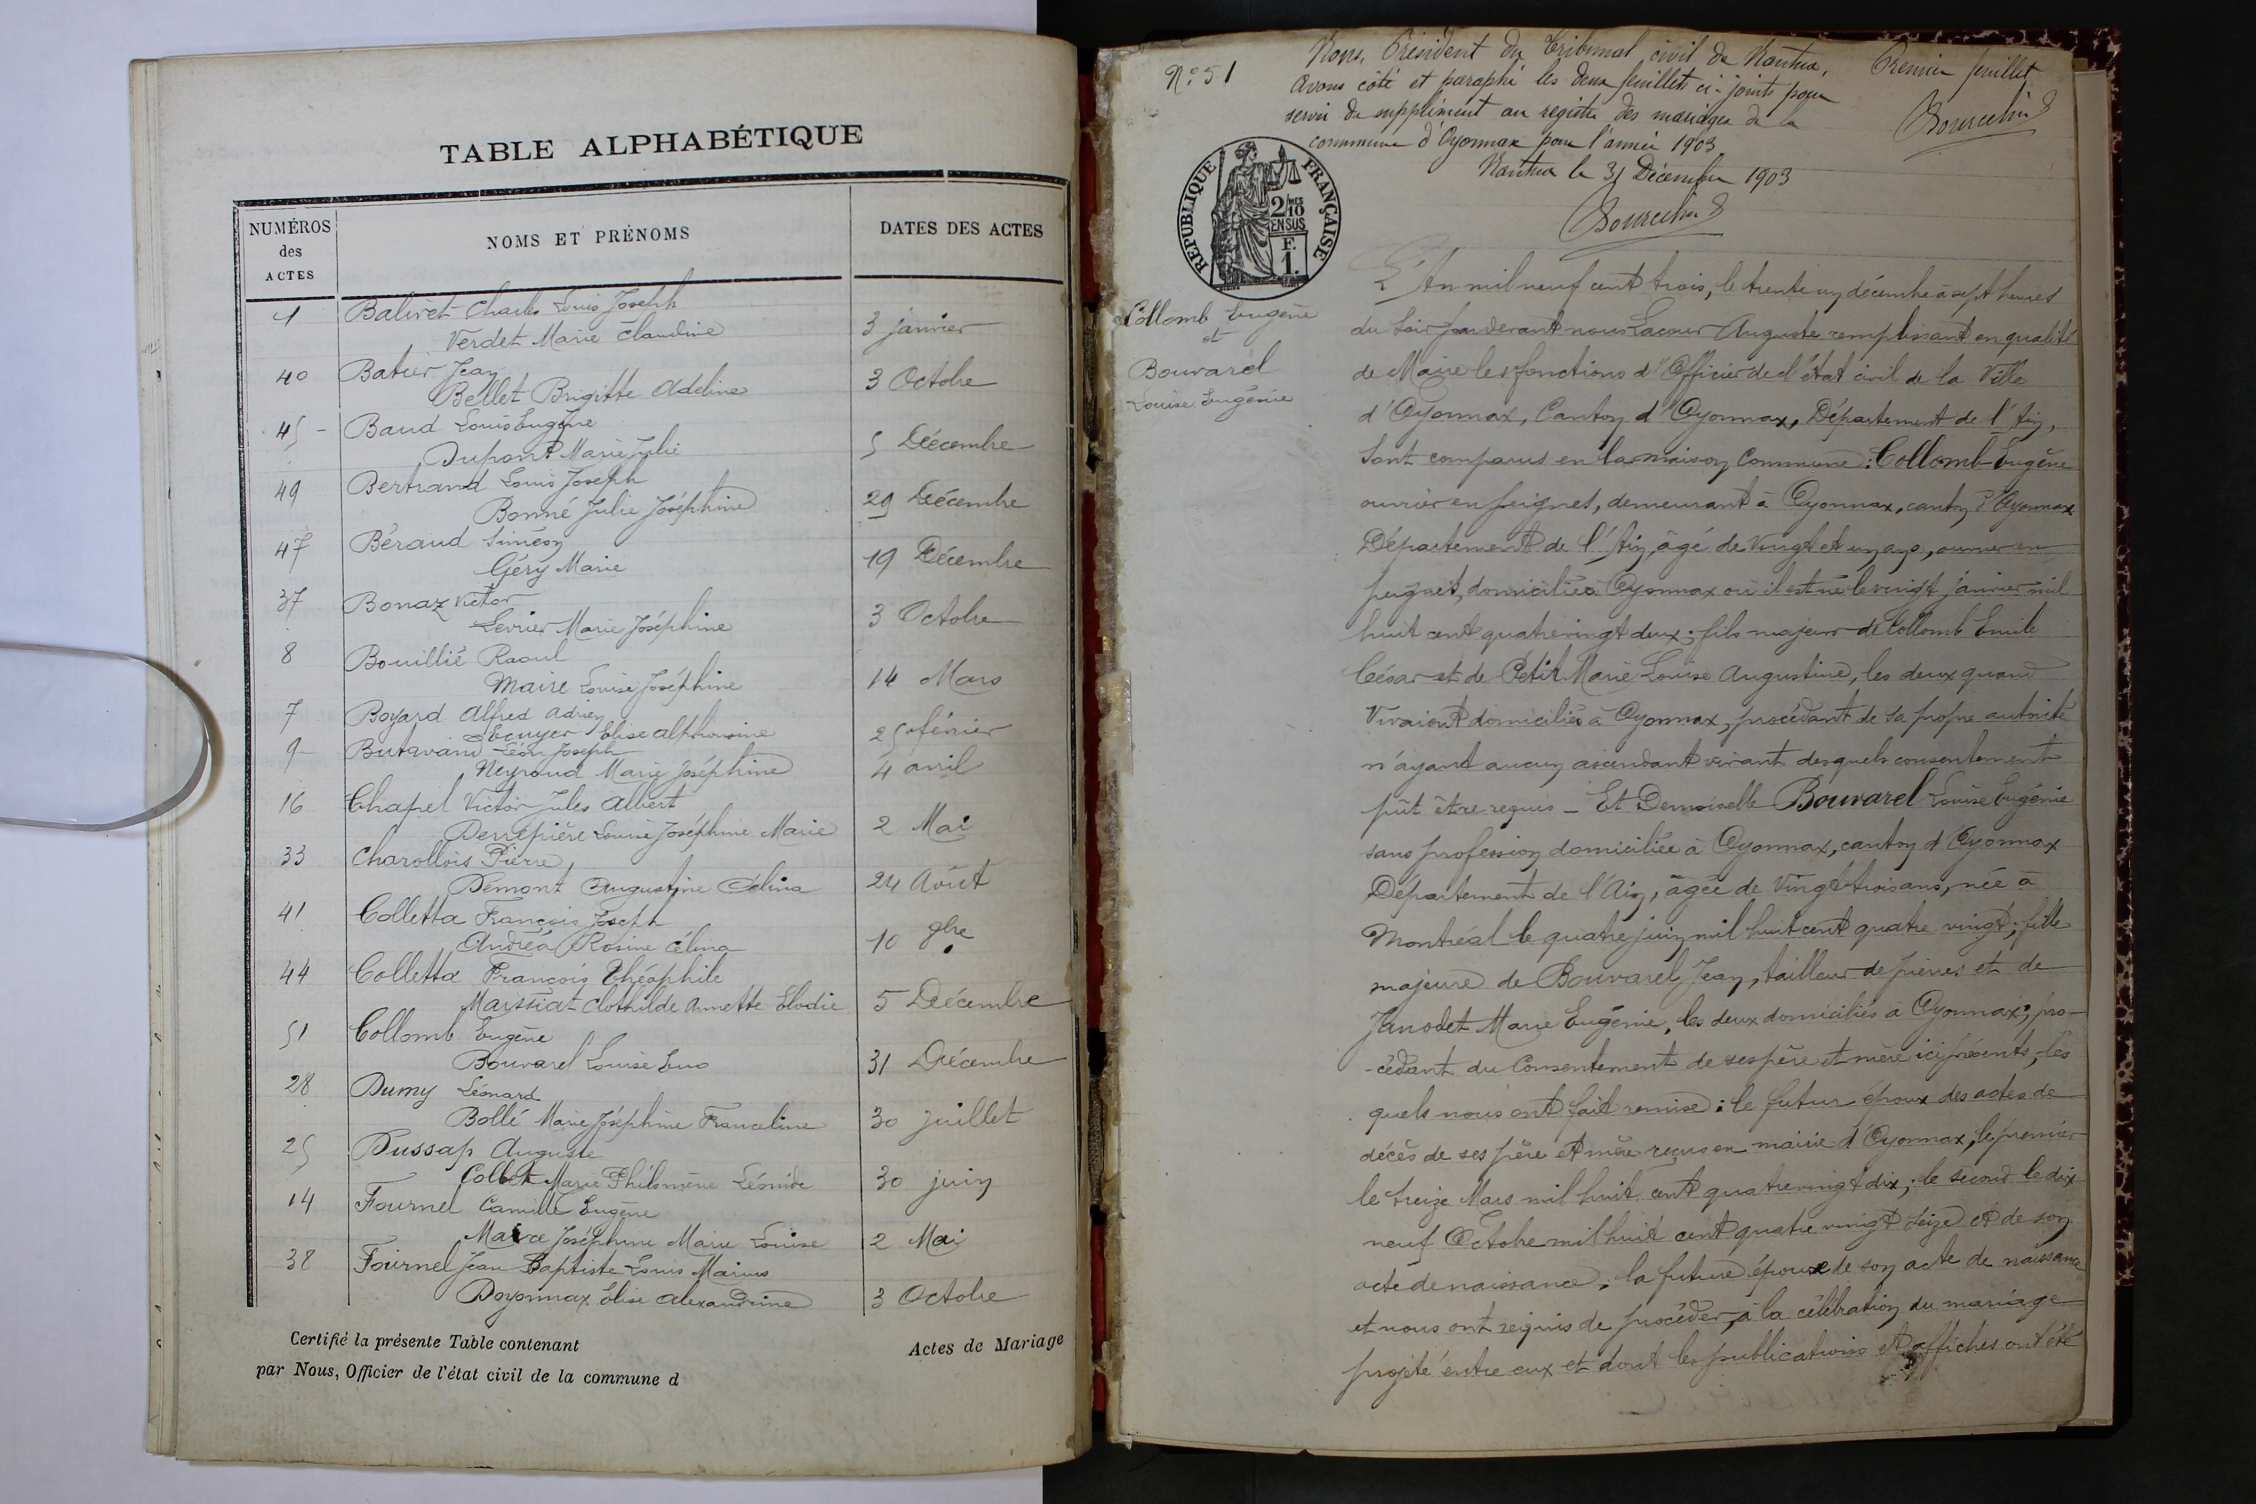 TABLE ALPHABÉTIQUE
NUMÉROS
des
ACTES
NOMS ET PRÉNOMS
DATES DES ACTES
1 Balivet Charles Louis Joseph
Verdet Marie Claudine 3 janvier
40 Batier Jean
Bellet Brigitte Adeline 3 Octobre
45 - Baud Louis Eugène
Dupont Marie Julie 5 Décembre
49 Bertrand Louis Joseph
Bonné Julie Joséphine 29 Décembre
47 Béraud Siméon
Géry Marie 19 Décembre
37 Bonaz Victor
Levrier Marie Joséphine 3 Octobre
8 Bouillié Raoul
Maire Louise Joséphine 14 Mars
7 Boyard Alfred Adrien
Lécuyer Elise Alphonsine 25 février
9 Butavand Léon Joseph
Neyroud Marie Joséphine 4 avril
16 Chapel Victor Jules Albert
Louise Joséphine Marie 2 Mai
33 Charollois Pierre
Démont Augustine Célina 24 Août
41 Colletta François Joseph
Andréa Rosine Célina 10 9bre
44 Colletta François Théophile
Maissiat Clothilde Annette Elodie 5 Décembre
51 Collomb Eugène
Bouvarel Louise 31 Décembre
28 Dumy Léonard
Bollé Marie Joséphine Franceline 30 juillet
25 Dussap Auguste
Collet Marie Philomène Léonide 30 juin
14 Fournel Camille Eugène
Joséphine Marie Louise 2 Mai
38 Fournel Jean Baptiste Louis Marius
Doyonnax Elise Alexandrine 3 Octobre
Certifié la présente Table contenant Actes de Mariage
par Nous, Officier de l'état civil de la commune d
N° 51
Nous, Président du Tribunal civil de Nantua,
Avons côté et paraphé les deux feuillets ci-joints pour
servir de supplément au registre des mariages de la
commune d'Oyonnax pour l'année 1903
Nantua le 31 Décembre 1903
Premier feuillet
RÉPUBLIQUE FRANÇAISE
2/10
EN SUS
F.
1.
Collomb Eugène
et
Bouvarel
Louise Eugénie
L'An mil neuf cent trois, le trente un décembre à sept heures
du soir par devant nous Lacour Auguste remplissant en qualité
de Maire les fonctions d'Officier de l'état civil de la Ville
d'Oyonnax, Canton d'Oyonnax, Département de l'Ain,
Sont comparus en la maison Commune : Collomb Eugène
ouvrier en peignes, demeurant à Oyonnax, canton d'Oyonnax
Département de l'Ain, âgé de Vingt et un ans, ouvrier en
peignes, domicilié à Oyonnax où il est né le vingt janvier mil
huit cent quatre vingt deux ; fils majeur de Collomb Emile
César et de Petit Marie Louise Augustine, les deux quand
Vivaient domiciliés à Oyonnax, procédant de sa propre autorité
n'ayant aucun ascendant vivant desquels consentement
pût être requis - Et Demoiselle Bouvarel Louise Eugénie
sans profession domiciliée à Oyonnax, canton d'Oyonnax
Département de l'Ain, âgée de Vingt trois ans, née à
Montréal le quatre juin mil huit cent quatre vingt ; fille
majeure de Bouvarel Jean, tailleur de pierres et de
Janodet Marie Eugénie, les deux domiciliés à Oyonnax ; pro-
-cédant du Consentement de ses père et mère ici présents, les
quels nous ont fait remise : le futur époux des actes de
décès de ses père et mère reçus en mairie d'Oyonnax, le premier
le treize Mars mil huit cent quatre vingt dix ; le second le dix
neuf Octobre mil huit cent quatre vingt seize et de son
acte de naissance, la future épouse de son acte de naissance
et nous ont requis de procéder à la célébration du mariage
projeté entre eux et dont les publications et affiches ont été